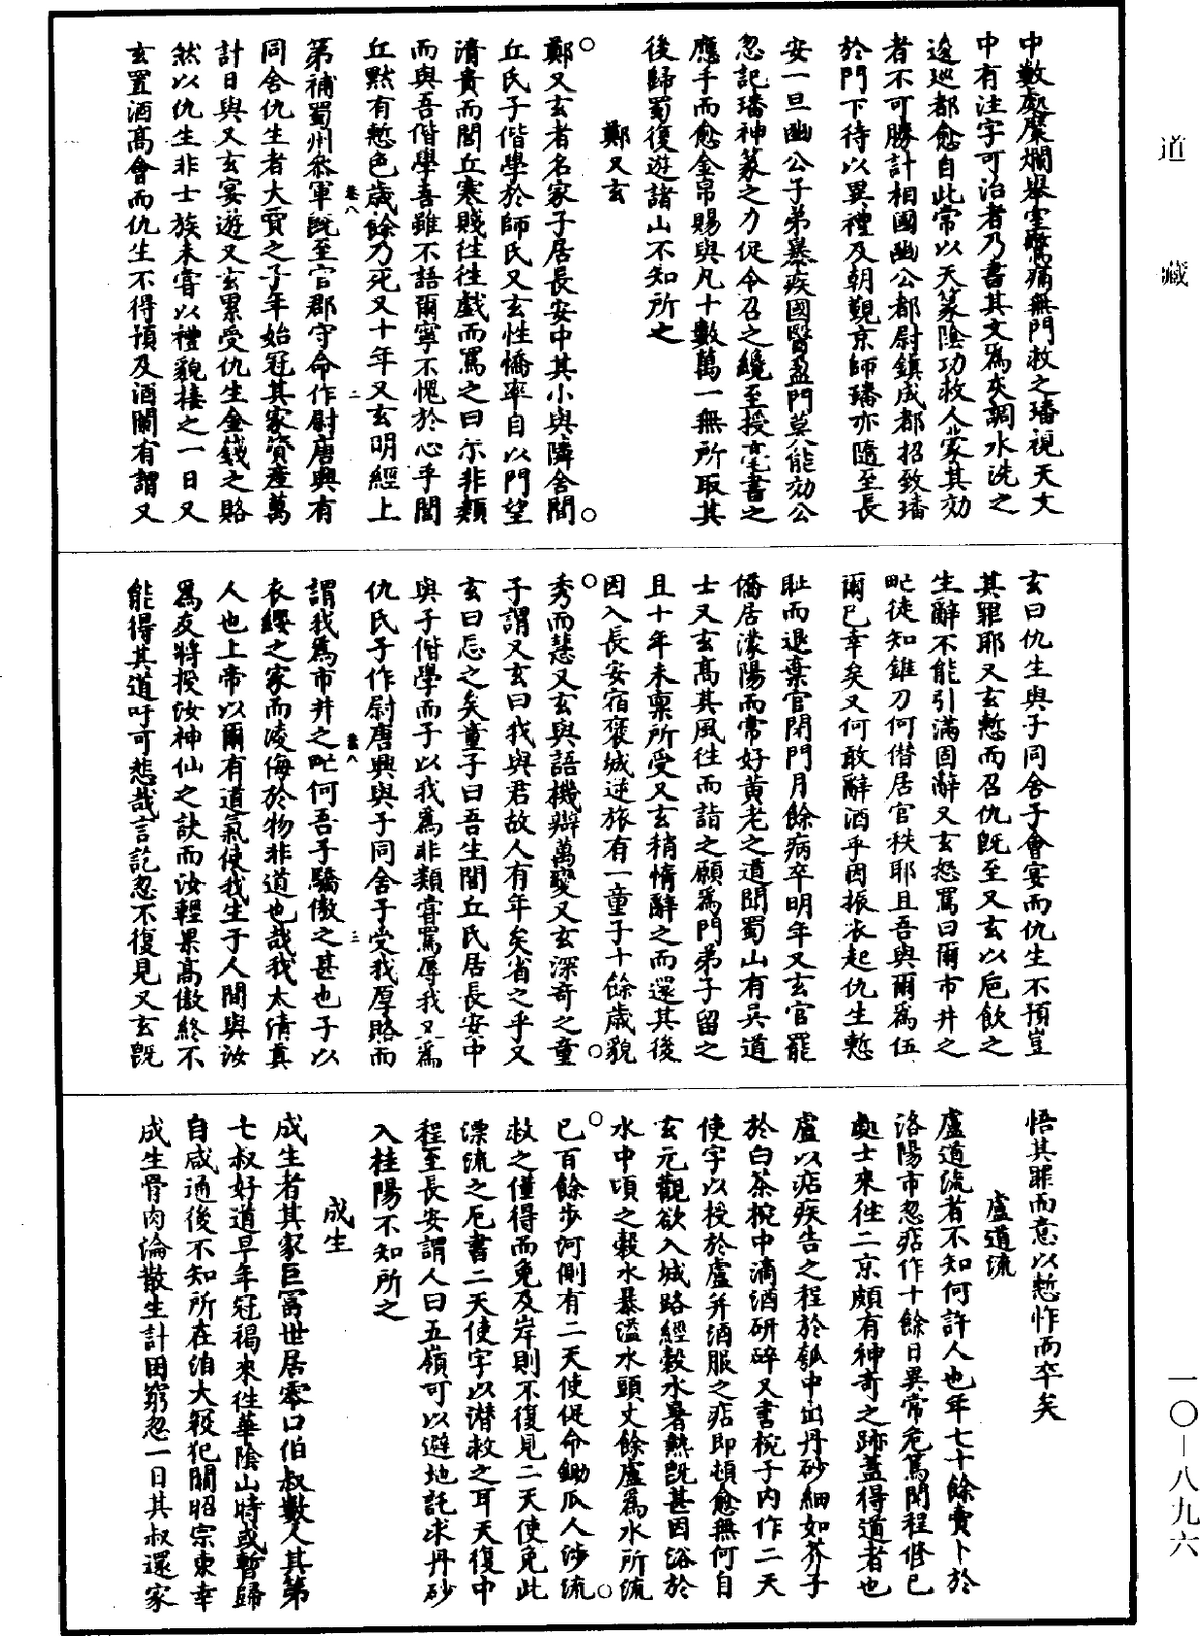 中數處糜爛舉室驚痛無門救之璠視天文
中有注字可治者乃書其文爲灰調水洗之
逡巡都愈自此常以天篆陰功救人蒙其効
者不可勝計相國豳公都尉鎮成都招致璠
於門下待以異禮及朝覲京師璠亦隨至長
安一旦豳公子弟暴疾國醫盈門莫能効公
忽記璠神篆之力促令召之纔至授毫書之
應手而愈金帛賜與凡十數萬一無所取其
後歸蜀復遊諸山不知所之
鄭又玄
鄭又玄者名家子居長安中其小與隣舍閭
丘氏子偕學於師氏又玄性憍率自以門望
清貴而閭丘寒賤往往戲而罵之曰尓非類
而與吾偕學吾雖不語爾寧不愧於心乎閭
丘默有慙色歲餘乃死又十年又玄明經上
卷八 二
第補蜀州叅軍旣至官郡守命作尉唐興有
同舍仇生者大賈之子年始冠其家資産萬
計日與又玄宴遊又玄累受仇生金錢之賂
然以仇生非士族未嘗以禮貌接之一日又
玄置酒高會而仇生不得預及酒闌有謂又
玄曰仇生與子同舍子會宴而仇生不預豈
其罪耶又玄慙而召仇旣至又玄以巵飲之
生辭不能引滿固辭又玄怒罵曰爾市井之
甿徒知錐刀何僣居官秩耶且吾與爾爲伍
爾已幸矣又何敢辭酒乎因振衣起仇生慙
耻而退棄官閉門月餘病卒明年又玄官罷
僑居濛陽而常好黄老之道聞蜀山有吳道
士又玄高其風往而詣之願爲門弟子留之
且十年未稟所受又玄稍惰辭之而還其後
因入長安宿褒城逆旅有一童子十餘歲貌
秀而慧又玄與語機辯萬變又玄深奇之童
子謂又玄曰我與君故人有年矣省之乎又
玄曰忘之矣童子曰吾生閭丘氏居長安中
與子偕學而子以我爲非類嘗罵辱我又爲
仇氏子作尉唐興與子同舍子受我厚賂而
卷八 三
謂我爲市井之甿何吾子驕傲之甚也子以
衣纓之家而凌侮於物非道也哉我太倩真
人也上帝以爾有道氣使我生于人間與汝
爲友將授汝神仙之訣而汝輕果高傲終不
能得其道吁可悲哉言訖忽不復見又玄旣
悟其罪而意以慙怍而卒矣
盧道流
盧道流者不知何許人也年七十餘賣卜於
洛陽市忽痁作十餘日異常危篤聞程修己
處士來往二京頗有神奇之跡蓋得道者也
盧以痁疾告之程於瓠中出丹砂細如芥子
於白茶椀中滴酒研碎又書椀子内作二天
使字以授於盧并酒服之痁即頓愈無何自
玄元觀欲入城路經糓水暑熱旣甚因浴於
水中頃之糓水暴溢水頭丈餘盧爲水所流
已百餘步河側有二天使促命鋤瓜人涉流
救之僅得而免及岸則不復見二天使免此
漂流之厄書二天使字以潜救之耳天復中
程至長安謂人曰五嶺可以避地託求丹砂
入桂陽不知所之
成生
成生者其家巨富世居零口伯叔數人其第
七叔好道早年冠褐來往華陰山時或暫歸
自咸通後不知所在洎大寇犯關昭宗東幸
成生骨肉淪散生計困窮忽一日其叔還家
道藏
一〇—八九六